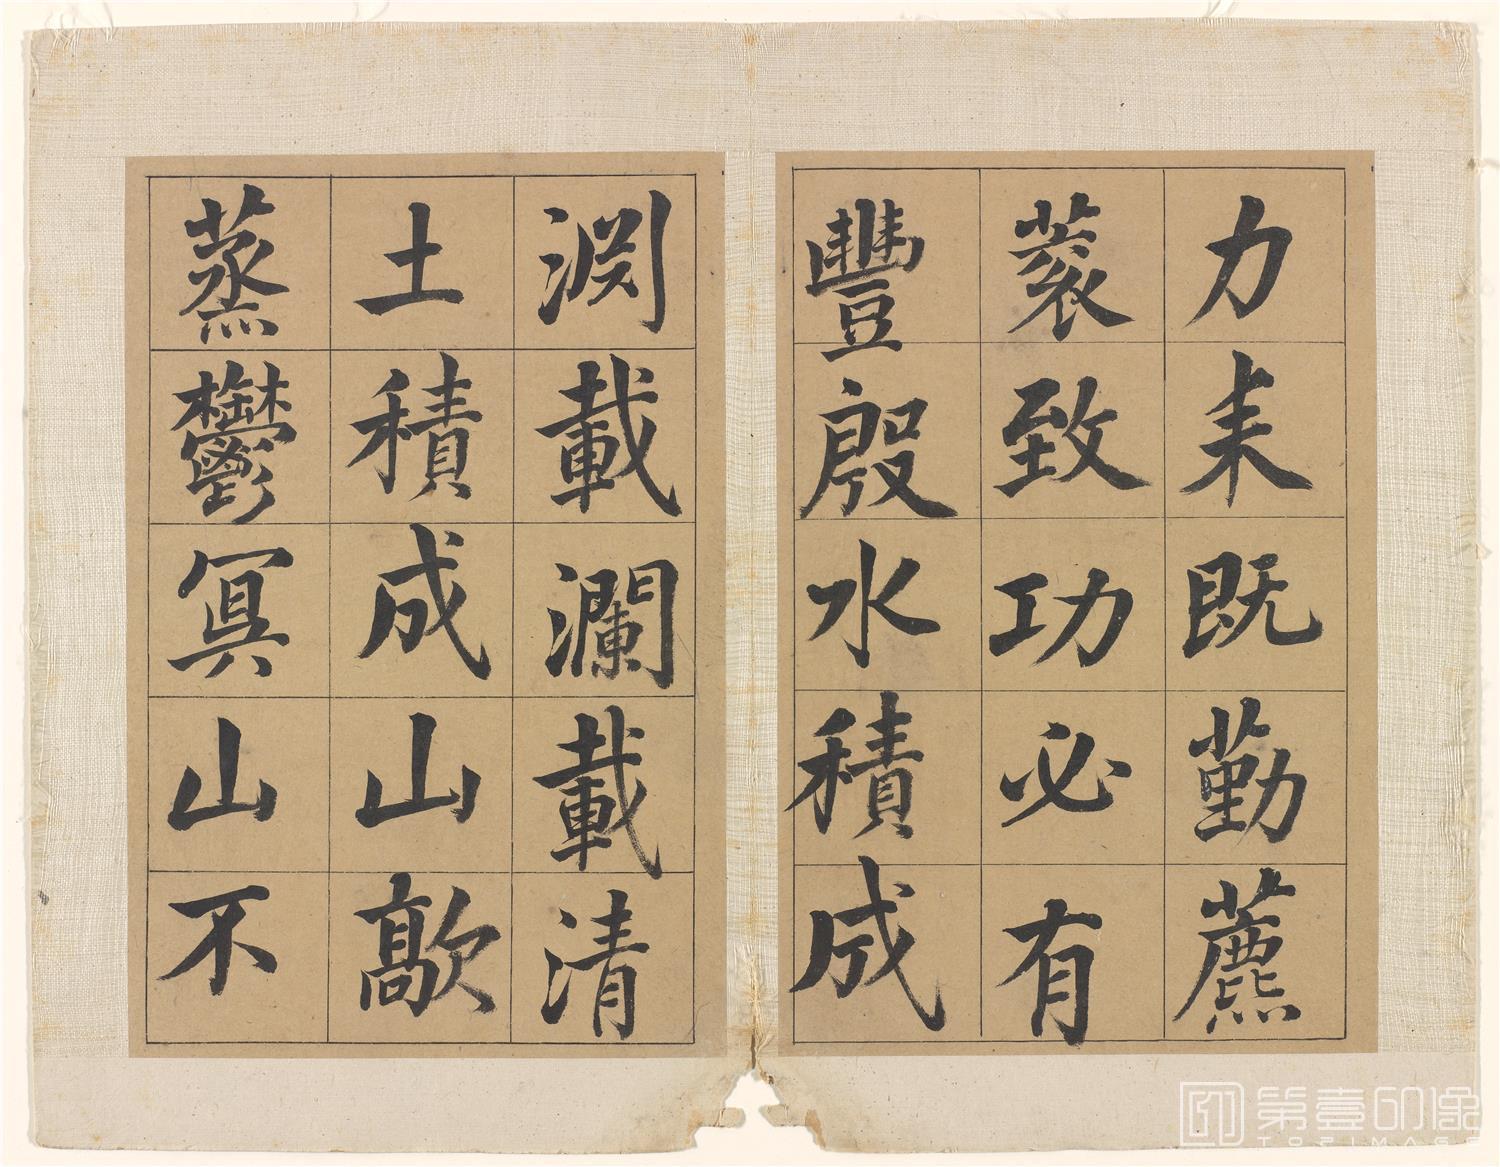 力耒既勤藨
蓘致功必有
豐殷水積成
淵載瀾載清
土積成山歊
蒸鬱冥山不
第壹印像
TOPIMAGE